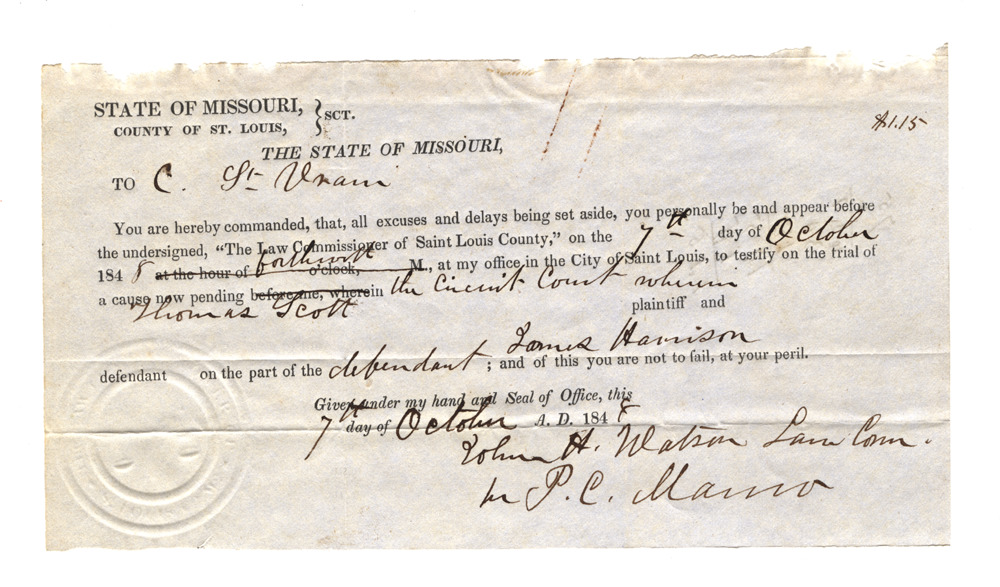 STATE OF MISSOURI, } SCT.
COUNTY OF ST. LOUIS,
$1.15
THE STATE OF MISSOURI,
TO C. St Vrain
You are hereby commanded, that, all excuses and delays being set aside, you personally be and appear before
the undersigned, "The Law Commissioner of Saint Louis County," on the 7th day of October
1848 at the hour of forthwith o'clock, M., at my office in the City of Saint Louis, to testify on the trial of
a cause now pending before me, wherein the Circuit Court wherein
Thomas Scott plaintiff and
James Harrison
defendant on the part of the defendant ; and of this you are not to fail, at your peril.
Given under my hand and Seal of Office, this
7th day of October A. D. 1848
John H. Watson Law Com.
P. C.